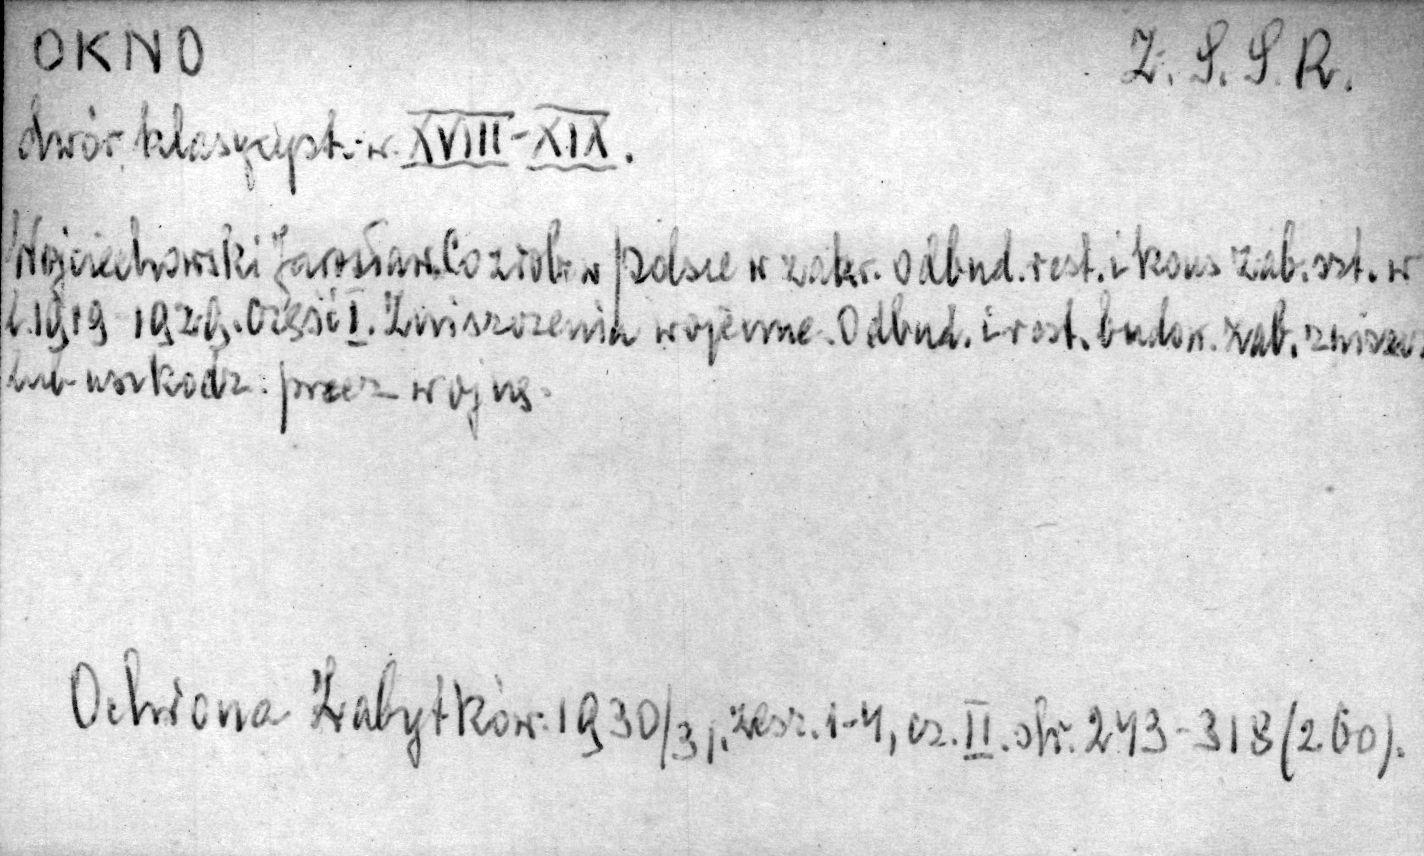 OKNO
Z. S. S. R.
dwór, klasycyst. w. XVIII-XIX.
Wojciechowski Jarosław. Co zrob. w Polsce w zakr. odbud. rest. i kons zab. szt. w
l. 1919 1929. Część I. Zniszczenia wojenne. Odbud. i rest. budow. zab. zniszcz.
lub uszkodz. przez wojnę.
Ochrona Zabytków. 1930/31, zesz. 1-4, cz. II. str. 243-318 (260).